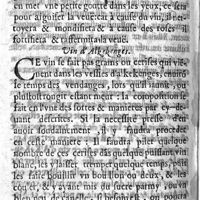 en met une petite goutte dans les yeux, ce sert
pour aiguiser la veue: car à cause du vin, il net-
toyera & mondifiera, & à cause des roses, il
fortifiera, & animera la veue.
Vin d'Alkekenges.
CE vin se fait par grains ou cerises qui vie-
nent dans les vessies d'Akekenges, enuirõ
le temps des vendanges, lors qu'il
leur est meur: la composition se
fait en vne des sortes & manieres par cy-de-
quant descrites. Si la necessité presse d'en
auoir soudainement, il y faudra proceder
en ceste maniere: Il faudra piler quelque
nombre de ces cerises dãs quelque puissant vin
blanc, les y laisser tremper quelque temps, puis
les faire bouillir vn bouillon ou deux, & les
couler, & y ayant mis du sucre parmy, ou vn
bien peu de canelle, si besoin est,